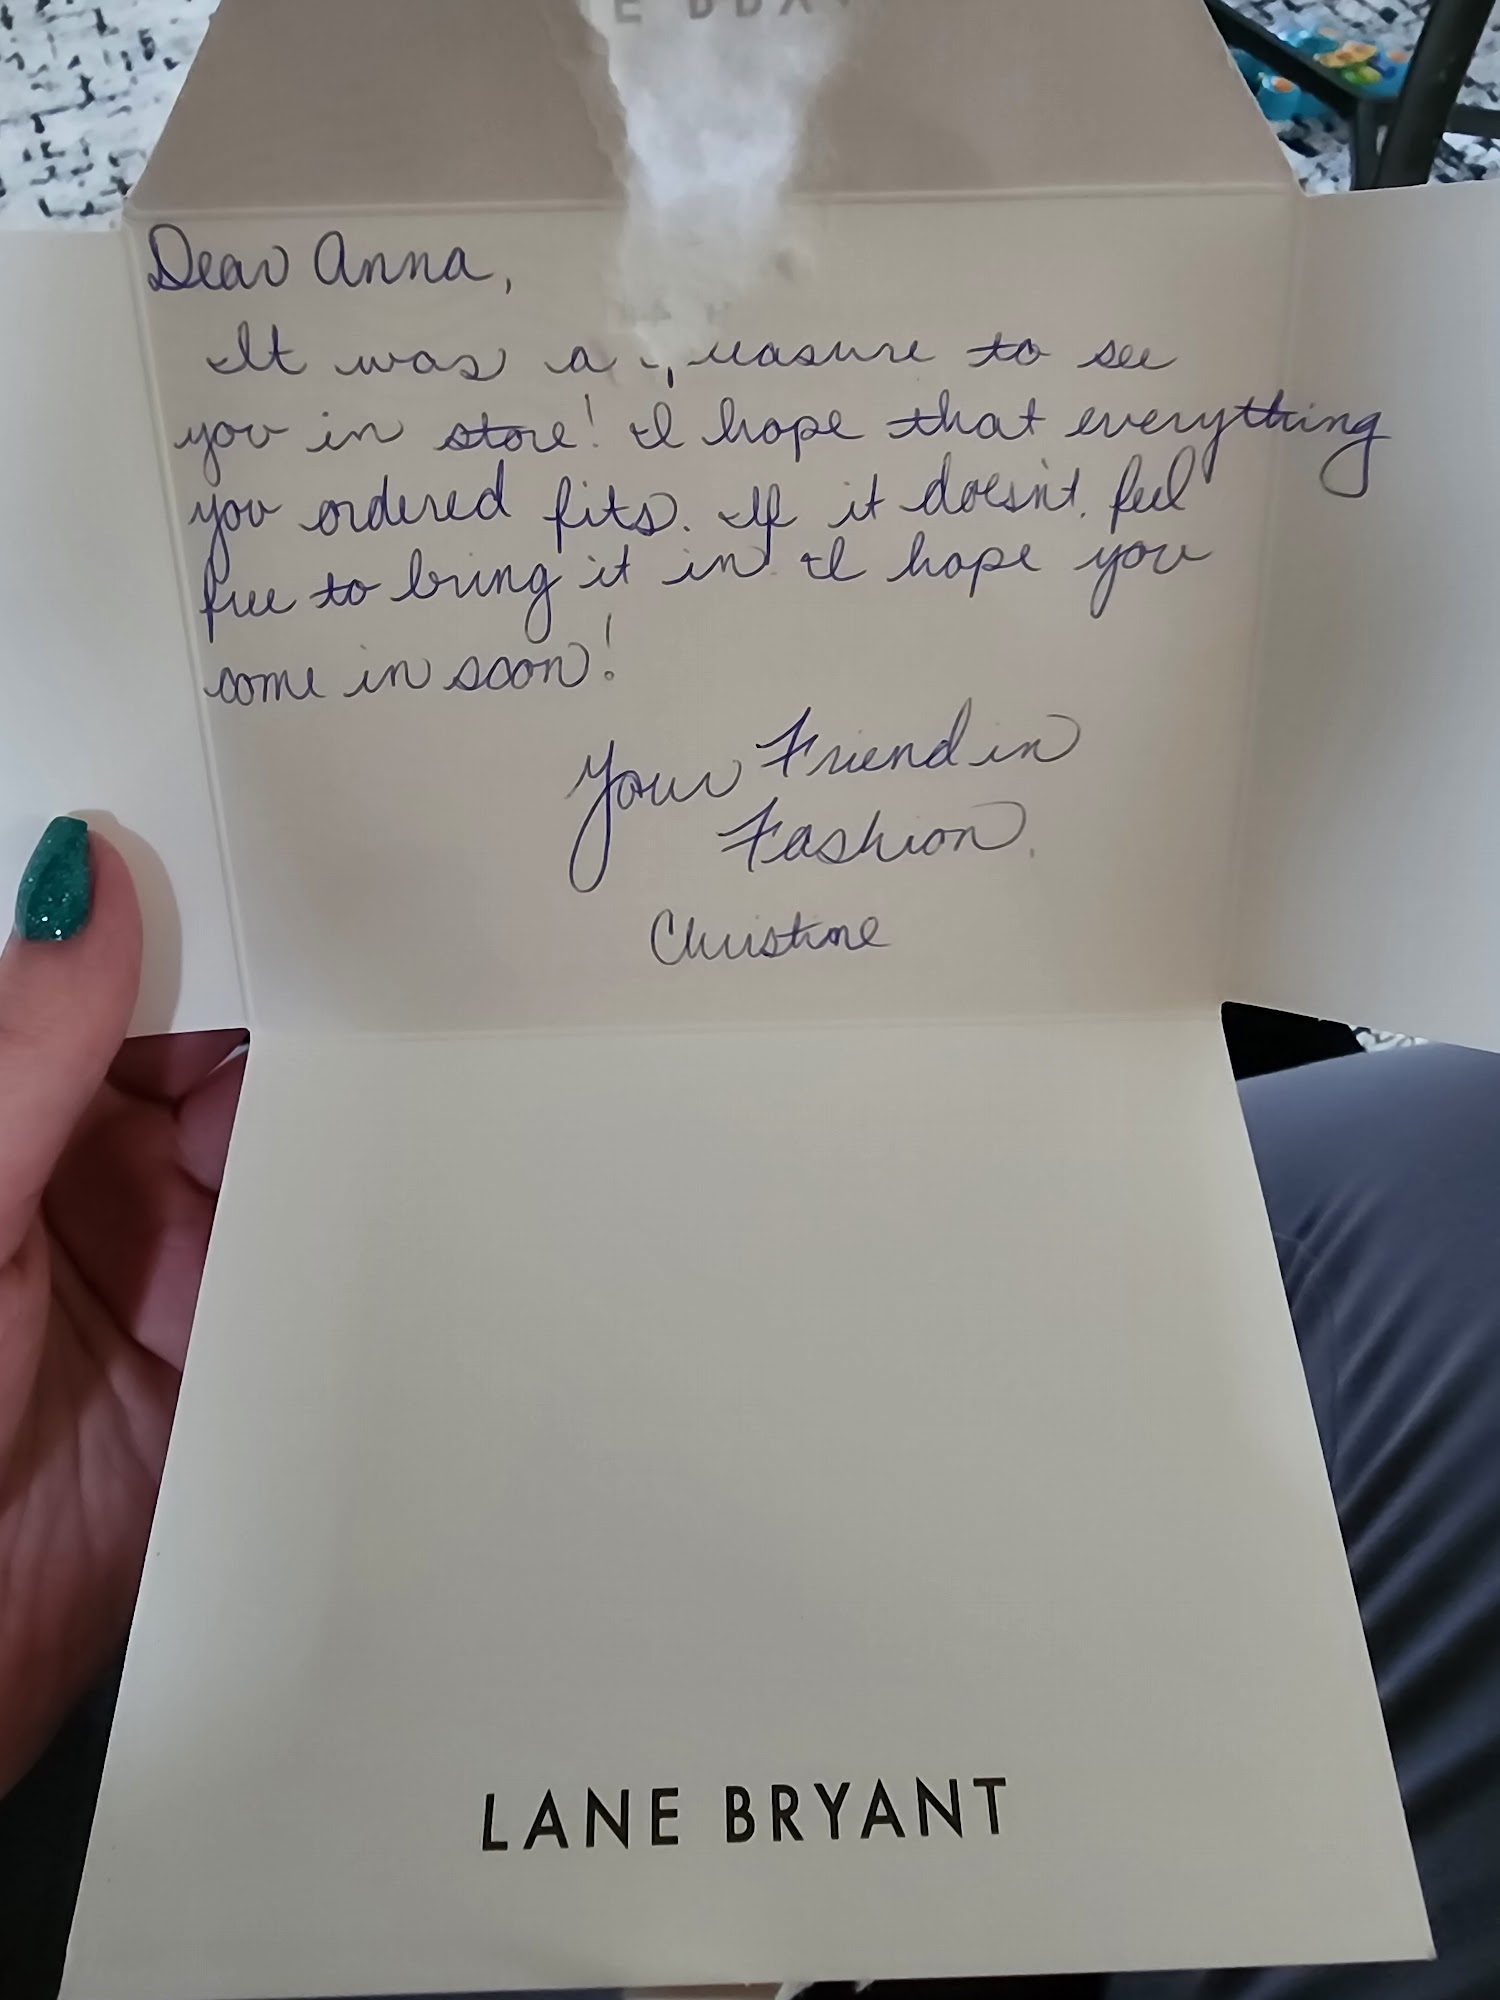 Dear Anna,
It was a pleasure to see
you in store! I hope that everything
you ordered fits. If it doesn't, feel
free to bring it in. I hope you
come in soon!
Your Friend in
Fashion,
Christine
LANE BRYANT